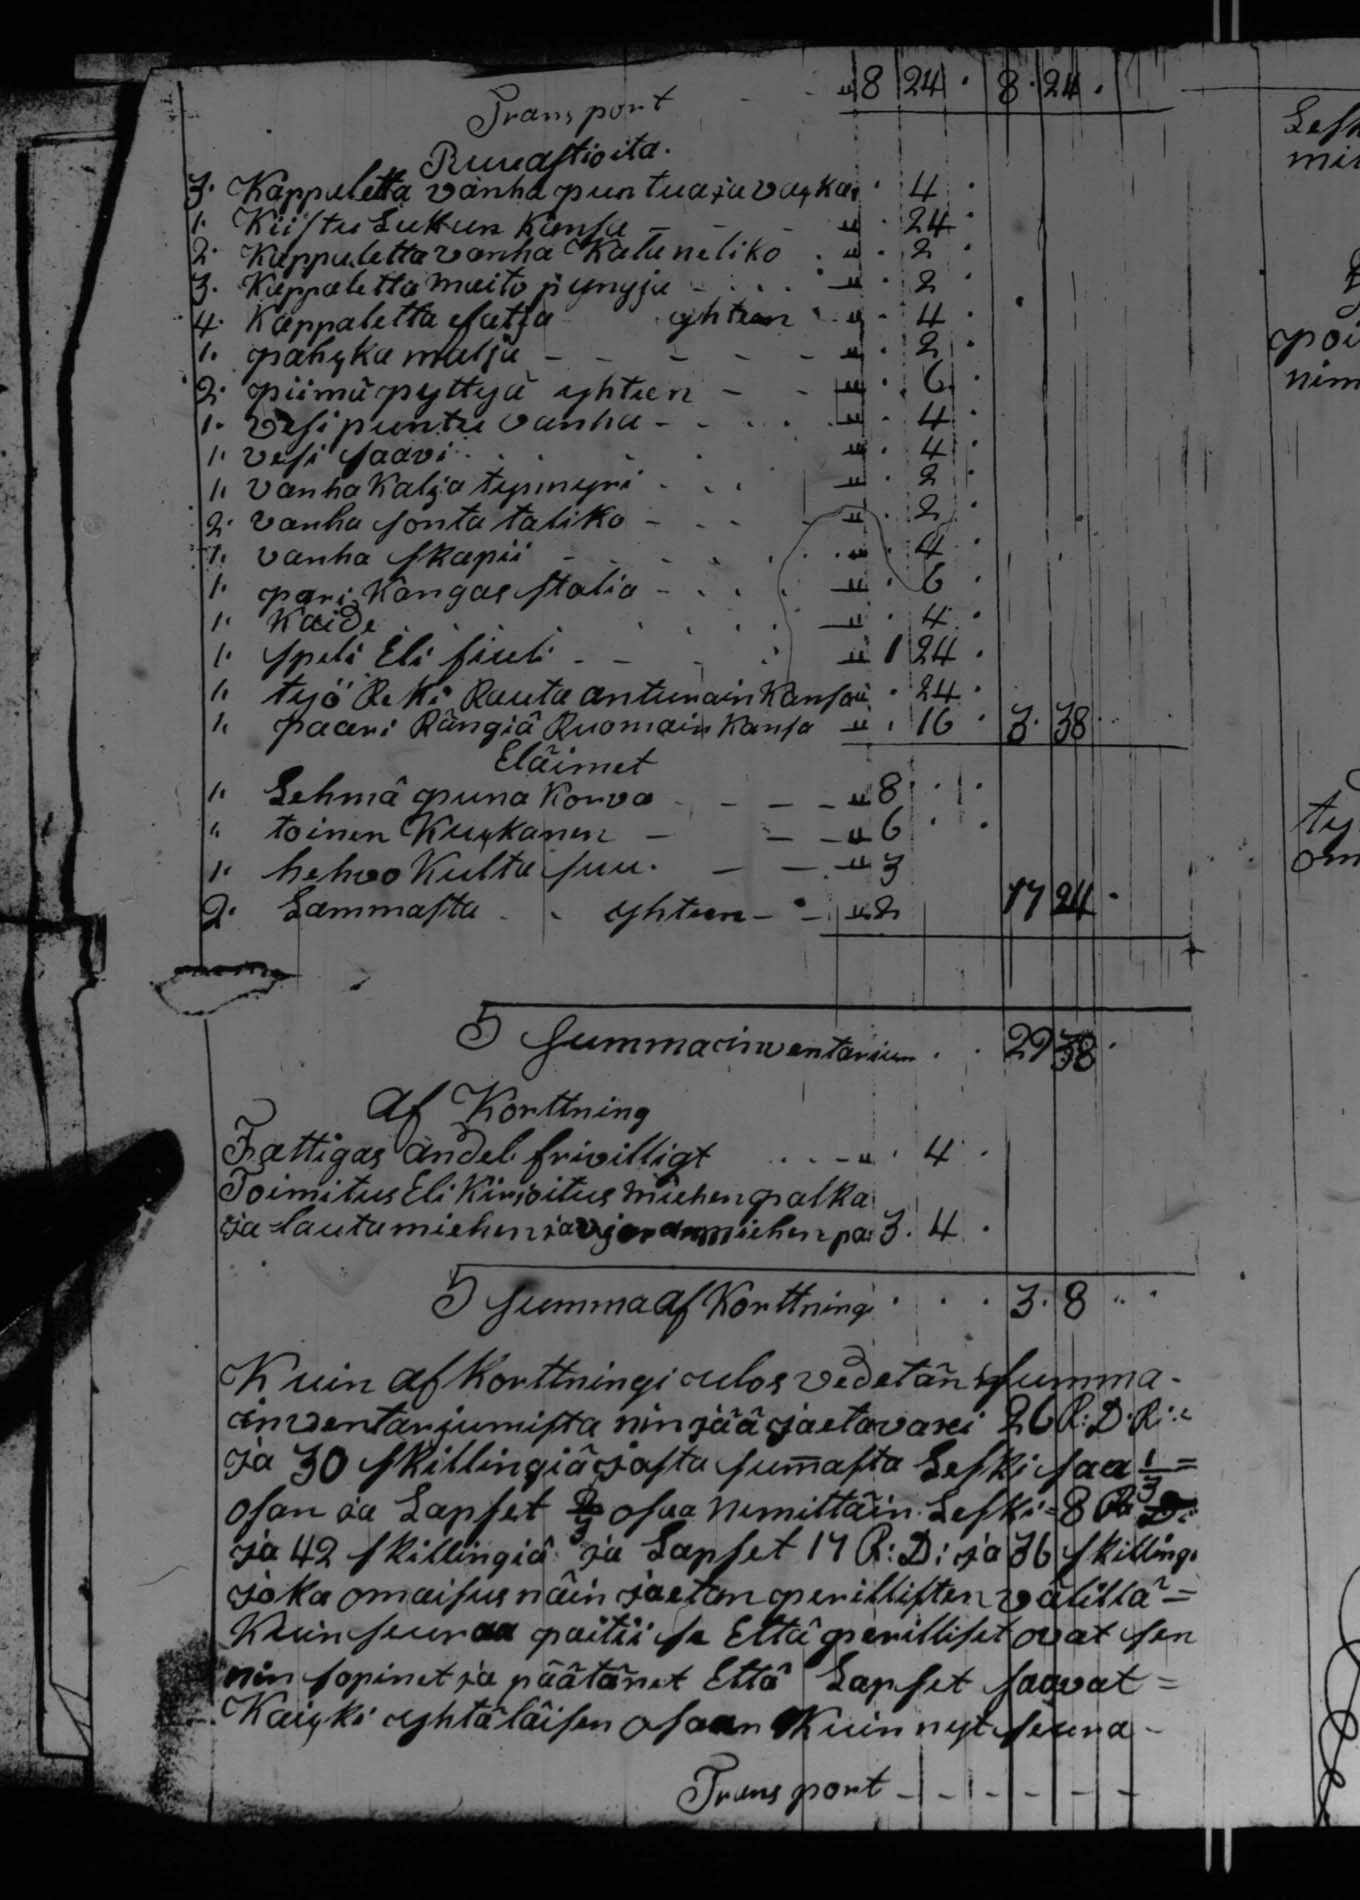 Transport - - " 8 24 . 8 . 24 .
Puuastioita .
3. Kappaletta vanha puntuaja vaxkar . 4 .
1. Kiistu Lukun Kansa - - - " . 24 .
2. Kappaletta vanha Kala neliko . " . 2 .
3. Kappaletta maito pynyjä - . . . " . 2
4. Kappaletta satja yhteen " . 4 .
1. pahxka malja - - - - - " . 2 .
2. piimä pyttyä yhteen - - " . 6 .
1. vesi puntu vanha - . . . " . 4 .
1. vesi saavi . . . . " . 4 .
1. vanha Kalja tynnyri . . . " . 2 .
2. vanha sonta taliko - . . - " . 2 .
1. vanha skapii - - . . . " . 4 .
1. pari Kangas stalia - . . . " . 6 .
1. Kaide . . . . . " . 4 .
1. speli Eli fiuli - - . . " 1 24 .
1. työ Reki Rauta anturain Kansa " . 24 .
1. paari Rängiä Ruomain Kansa " . 16 . 3 . 38
Eläimet
1. Lehmä puna Korva - - - " 8 . . .
" toinen Kuxkanen - - - " 6 . .
1. hehvo Kulta suu . - - " 3
2. Lammasta . . yhteen - - " 2 17 24 .
S summa inventarium . . 29 38 .
Af Korttning
Fattigas andel frivilligt . . . - " . 4 .
Toimitus Eli Kirjoitus miehen palka
ja lautamiehen ja miehen pa: 3 . 4 .
S summa af Korttningi . . . 3 . 8
Kuin af Korttningi ulos vedetän summa -
inventarjumista nin jää jaetavaxi 26 R: D: Ri:
ja 30 skillingiä josta summasta Leski saa 1/3 =
osan ja Lapset 2/3 osaa nimittäin Leski = 8 R: D:
ja 42 skillingiä ja Lapset 17 R: D: ja 36 skilling:
joka omaisus näin jaetan perillisten välillä =
Kuin seuraa paitii se Että perilliset ovat sen
nin sopinet ja päätänet Että Lapset saavat =
Kaixki yhtäläisen osaan Kuin nyt seura -
Transport - - - - - -
Lesk
min
poi
nim
ty
om